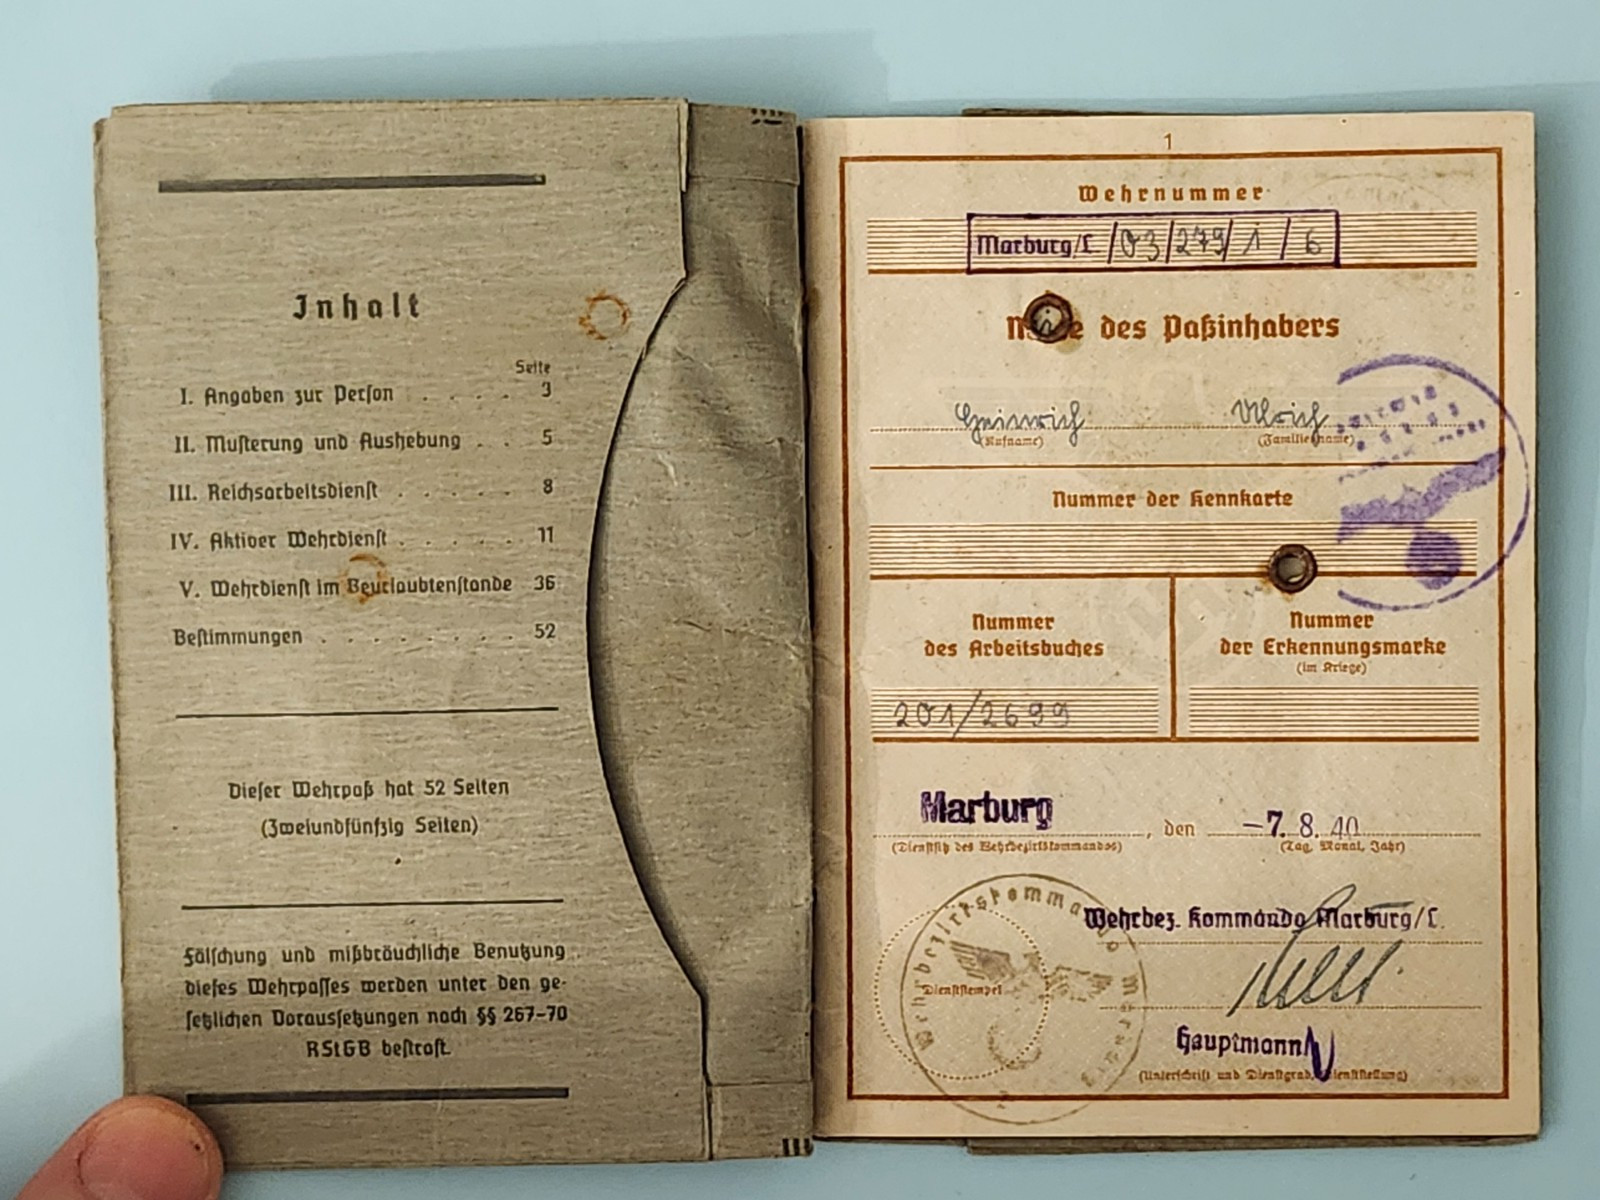 Inhalt
Seite
I. Angaben zur Person . . . . 3
II. Musterung und Aushebung . . 5
III. Reichsarbeitsdienst . . . . . 8
IV. Aktiver Wehrdienst . . . . . 11
V. Wehrdienst im Beurlaubtenstande 36
Bestimmungen . . . . . . . . 52
Dieser Wehrpaß hat 52 Seiten
(Zweiundfünfzig Seiten)
Fälschung und mißbräuchliche Benutzung
dieses Wehrpasses werden unter den ge-
setzlichen Voraussetzungen nach §§ 267-70
RStGB bestraft.
1
Wehrnummer
Marburg/L. /03/279/1/6
des Paßinhabers
Heinrich Ulrich
(Rufname) (Familienname)
Nummer der Kennkarte
Nummer
des Arbeitsbuches
201/2699
Nummer
der Erkennungsmarke
(im Kriege)
Marburg, den -7. 8. 40
(Dienstsitz des Wehrbezirkskommandos) (Tag, Monat, Jahr)
Wehrbez. Kommando Marburg/L.
Wehrbezirkskommando Marburg
Dienststempel
Hauptmann
(Unterschrift und Dienstgrad, Dienststellung)